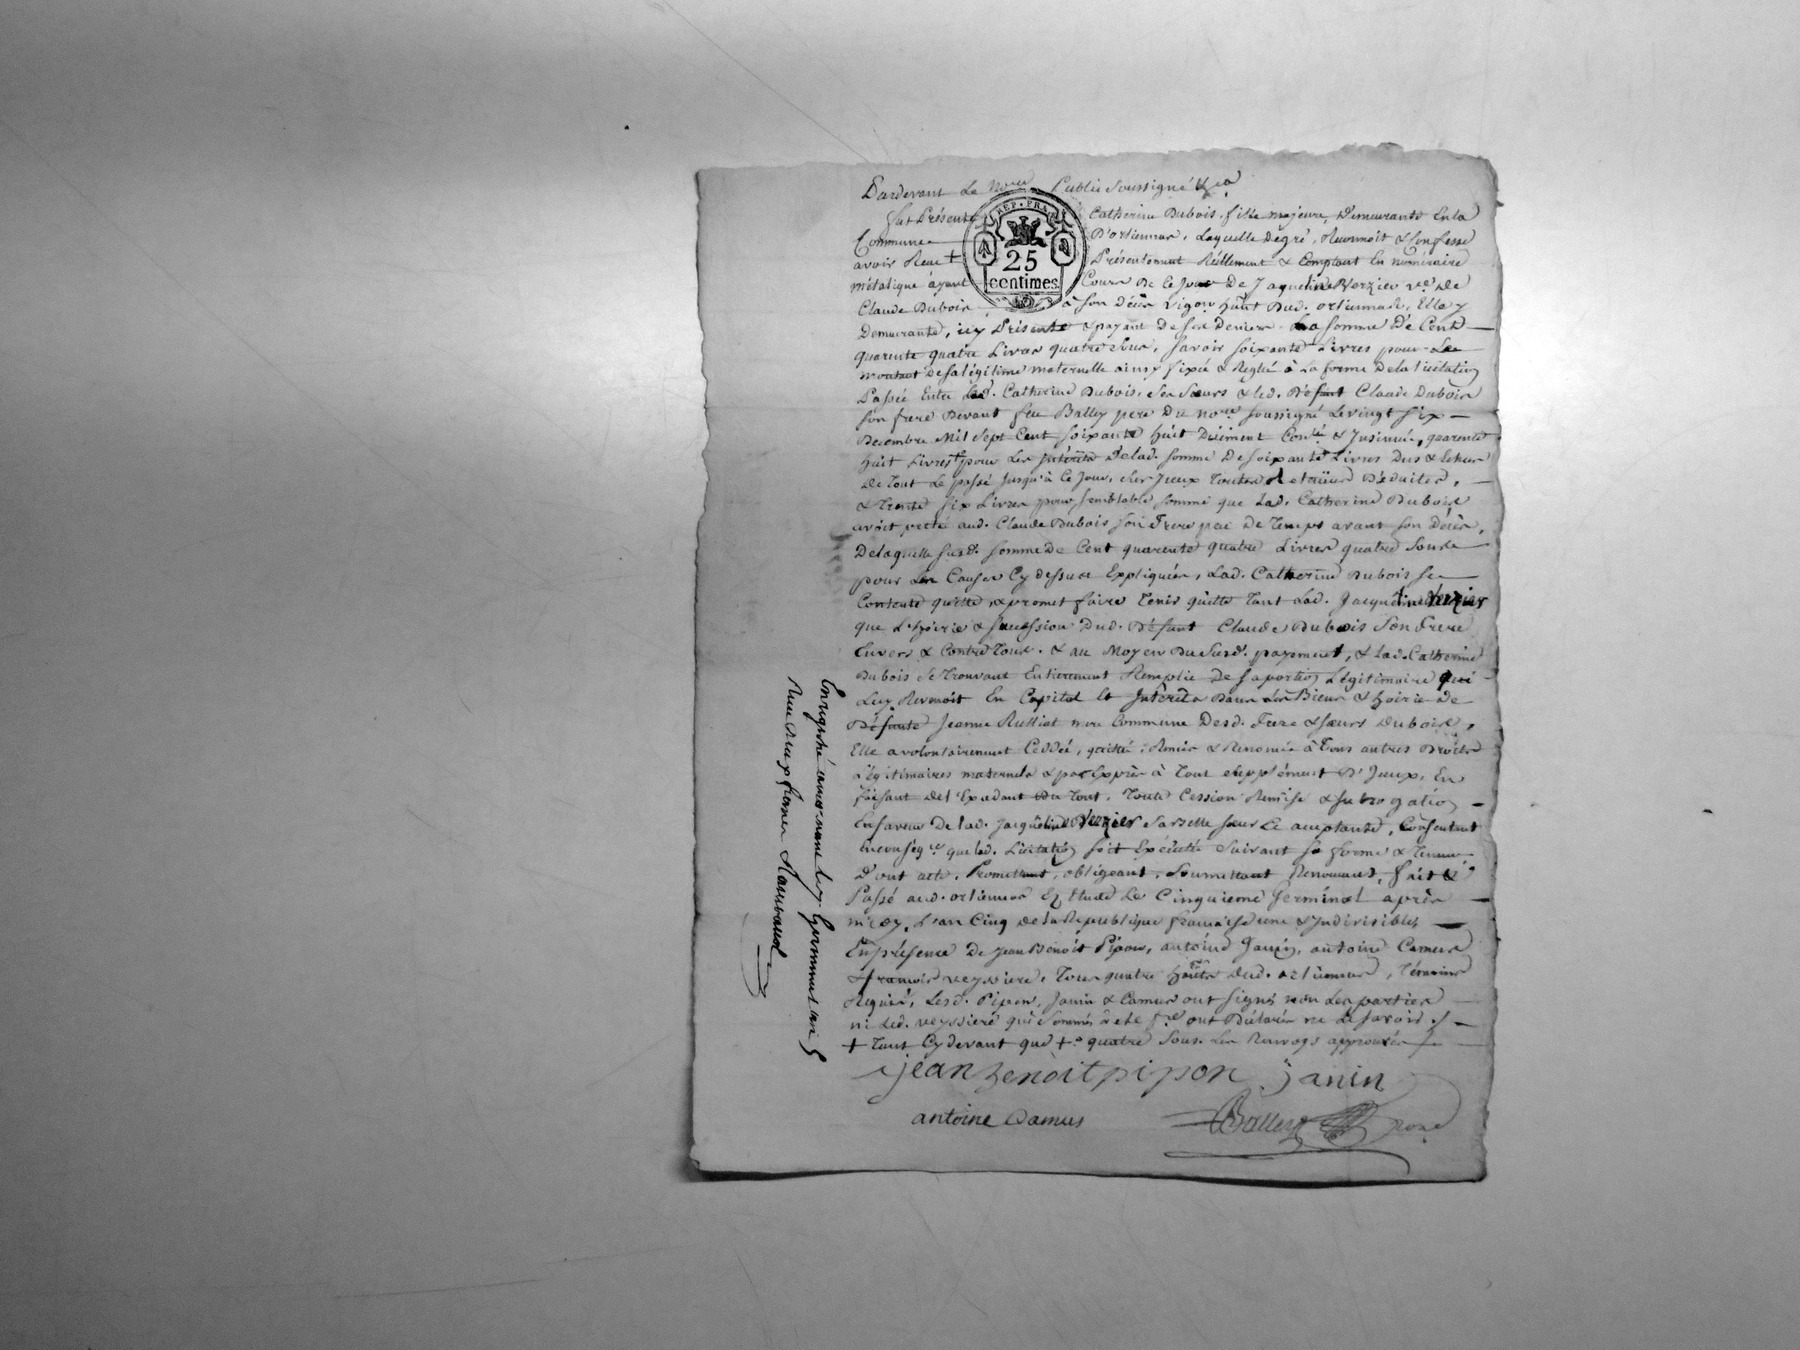 Pardevant Le No.re Public Soussigné &ca
REP. FRA.
25
centimes
fut Présente Catherine Dubois, fille majeure, Demeurante En la
Commune D'ortiennas, Laquelle Degré, Reconnoit & Confesse
avoir Receu + Présentement Réellement & Comptant En numéraire
métalique ayant Cours De Ce Jour De Jaqueline Verzier v.e De
Claude Dubois à son décès vigon habt Dud. ortiennas, Elle y
Demeurante, icy Présente & payant de ses Deniers La somme De Cent
quarente quatre Livres quatre sous, savoir soixante Livres pour Le
montant de sa légitime maternelle ainsy fixée & Réglée à La forme De la licitation
Passée Entre Lad. Catherine Dubois, ses sœurs & led. Défunt Claude Dubois
son frere Devant feu Balley pere Du no.re soussigné Le vingt six
Decembre Mil Sept Cent soixante huit Duement Con.lé & Insinuée, quarente
huit Livres + pour Les Intérêts De lad. somme De soixante Livres Dus & Echus
De tout Le passé Jusqu'à Ce Jour, sur Iceux toutes Retenues Déduites,
& Trente six Livres pour semblable somme que Lad. Catherine Dubois
avoit preté aud. Claude Dubois son Frere peu De temps avant son Décès,
De laquelle susd. somme De Cent quarente quatre Livres quatre Sous
pour Les Causes Cy dessus Expliquées, Lad. Catherine Dubois se
Contente quitte, & promet faire Tenir quitte tant Lad. Jaqueline Verzier
que L'hoirie & succession Dud. Défunt Claude Dubois son Frere
Envers & Contre tous. & au Moyen Du susd. payement, & Lad. Catherine
Dubois se trouvant Entierement Remplie De sa portion Légitimaire qui
Luy Revenoit En Capital et Intérêts Dans Les Biens & hoirie De
Défunte Jeanne Rulliat mere Commune Desd. Frere & sœurs Dubois,
Elle a volontairement Ceddé, quitté, Remis & Renoncé à tous autres Droits
Légitimaires maternels & par Exprès à tout supplément D'Iceux, En
faisant De l'Excedant Du tout, toute Cession Remise & subrogation
En faveur De lad. Jaqueline Verzier sa belle sœur Ce acceptante, Consentant
En conséq.ce que lad. Licitation soit Exécutée Suivant sa forme & Teneur
D'ont acte, Promettant, obligeant, Soumettant Renonçant, fait &
Passé aud. ortiennas En Etude Le Cinquieme Germinal après
midy, L'an Cinq de la République française une & Indivisible,
En présence De Jean Benoit Pipon, antoine Janin, antoine Camus
& françois veyssiere, Tous quatre habts dud. ortiennas, Témoins
Requis, Lesd. Pipon, Janin & Camus ont signé non Les parties
ni Led. veyssiere qui Sommés & ont Déclaré ne Le savoir
+ tant Cy devant que +.º quatre Sous. Les Renvoys approuvés
jean benoit pipon janin
antoine Camus Balley no.re
Enregistré Germinal an 5
Reçu Deux francs